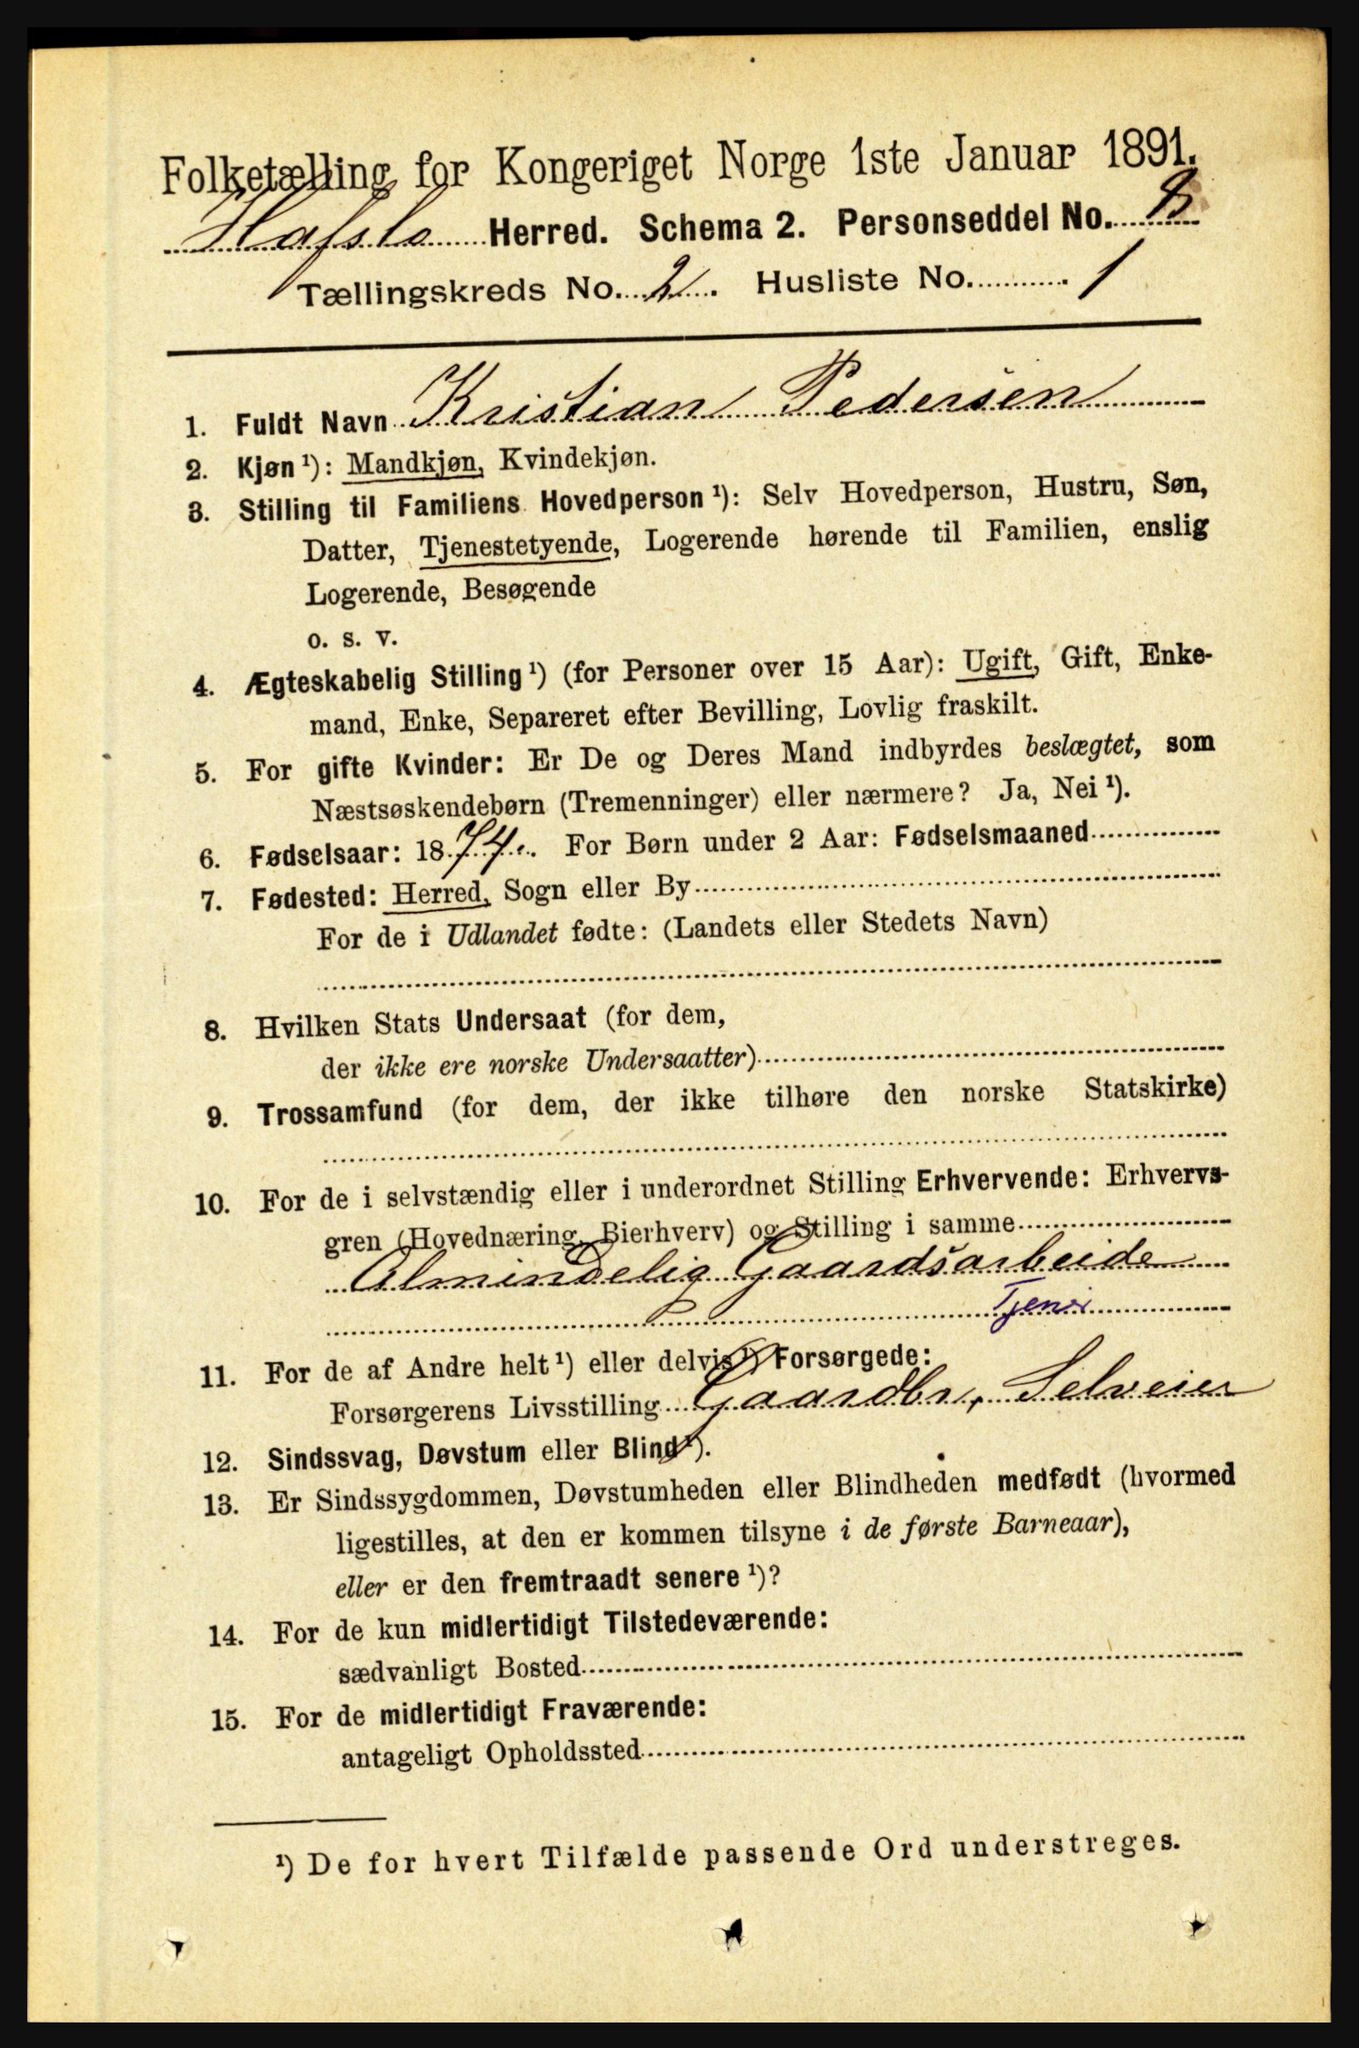 Folketælling for Kongeriget Norge 1ste Januar 1891.
Hafslo Herred. Schema 2. Personseddel No.
Tællingskreds No. 2. Husliste No. 1
1. Fuldt Navn Kristian Pedersen
2. Kjøn ¹): Mandkjøn, Kvindekjøn.
3. Stilling til Familiens Hovedperson ¹): Selv Hovedperson, Hustru, Søn,
Datter, Tjenestetyende, Logerende hørende til Familien, enslig
Logerende, Besøgende
o. s. v.
4. Ægteskabelig Stilling ¹) (for Personer over 15 Aar): Ugift, Gift, Enke-
mand, Enke, Separeret efter Bevilling, Lovlig fraskilt.
5. For gifte Kvinder: Er De og Deres Mand indbyrdes beslægtet, som
Næstsøskendebørn (Tremenninger) eller nærmere? Ja, Nei ¹).
6. Fødselsaar: 1874. For Børn under 2 Aar: Fødselsmaaned
7. Fødested: Herred, Sogn eller By
For de i Udlandet fødte: (Landets eller Stedets Navn)
8. Hvilken Stats Undersaat (for dem,
der ikke ere norske Undersaatter)
9. Trossamfund (for dem, der ikke tilhøre den norske Statskirke)
10. For de i selvstændig eller i underordnet Stilling Erhvervende: Erhvervs-
gren (Hovednæring, Bierhverv) og Stilling i samme
Almindelig Gaardsarbeide
Tjener
11. For de af Andre helt ¹) eller delvis ¹) Forsørgede:
Forsørgerens Livsstilling Gaardbr, Selveier
12. Sindssvag, Døvstum eller Blind ¹).
13. Er Sindssygdommen, Døvstumheden eller Blindheden medfødt (hvormed
ligestilles, at den er kommen tilsyne i de første Barneaar),
eller er den fremtraadt senere ¹)?
14. For de kun midlertidigt Tilstedeværende:
sædvanligt Bosted
15. For de midlertidigt Fraværende:
antageligt Opholdssted
¹) De for hvert Tilfælde passende Ord understreges.